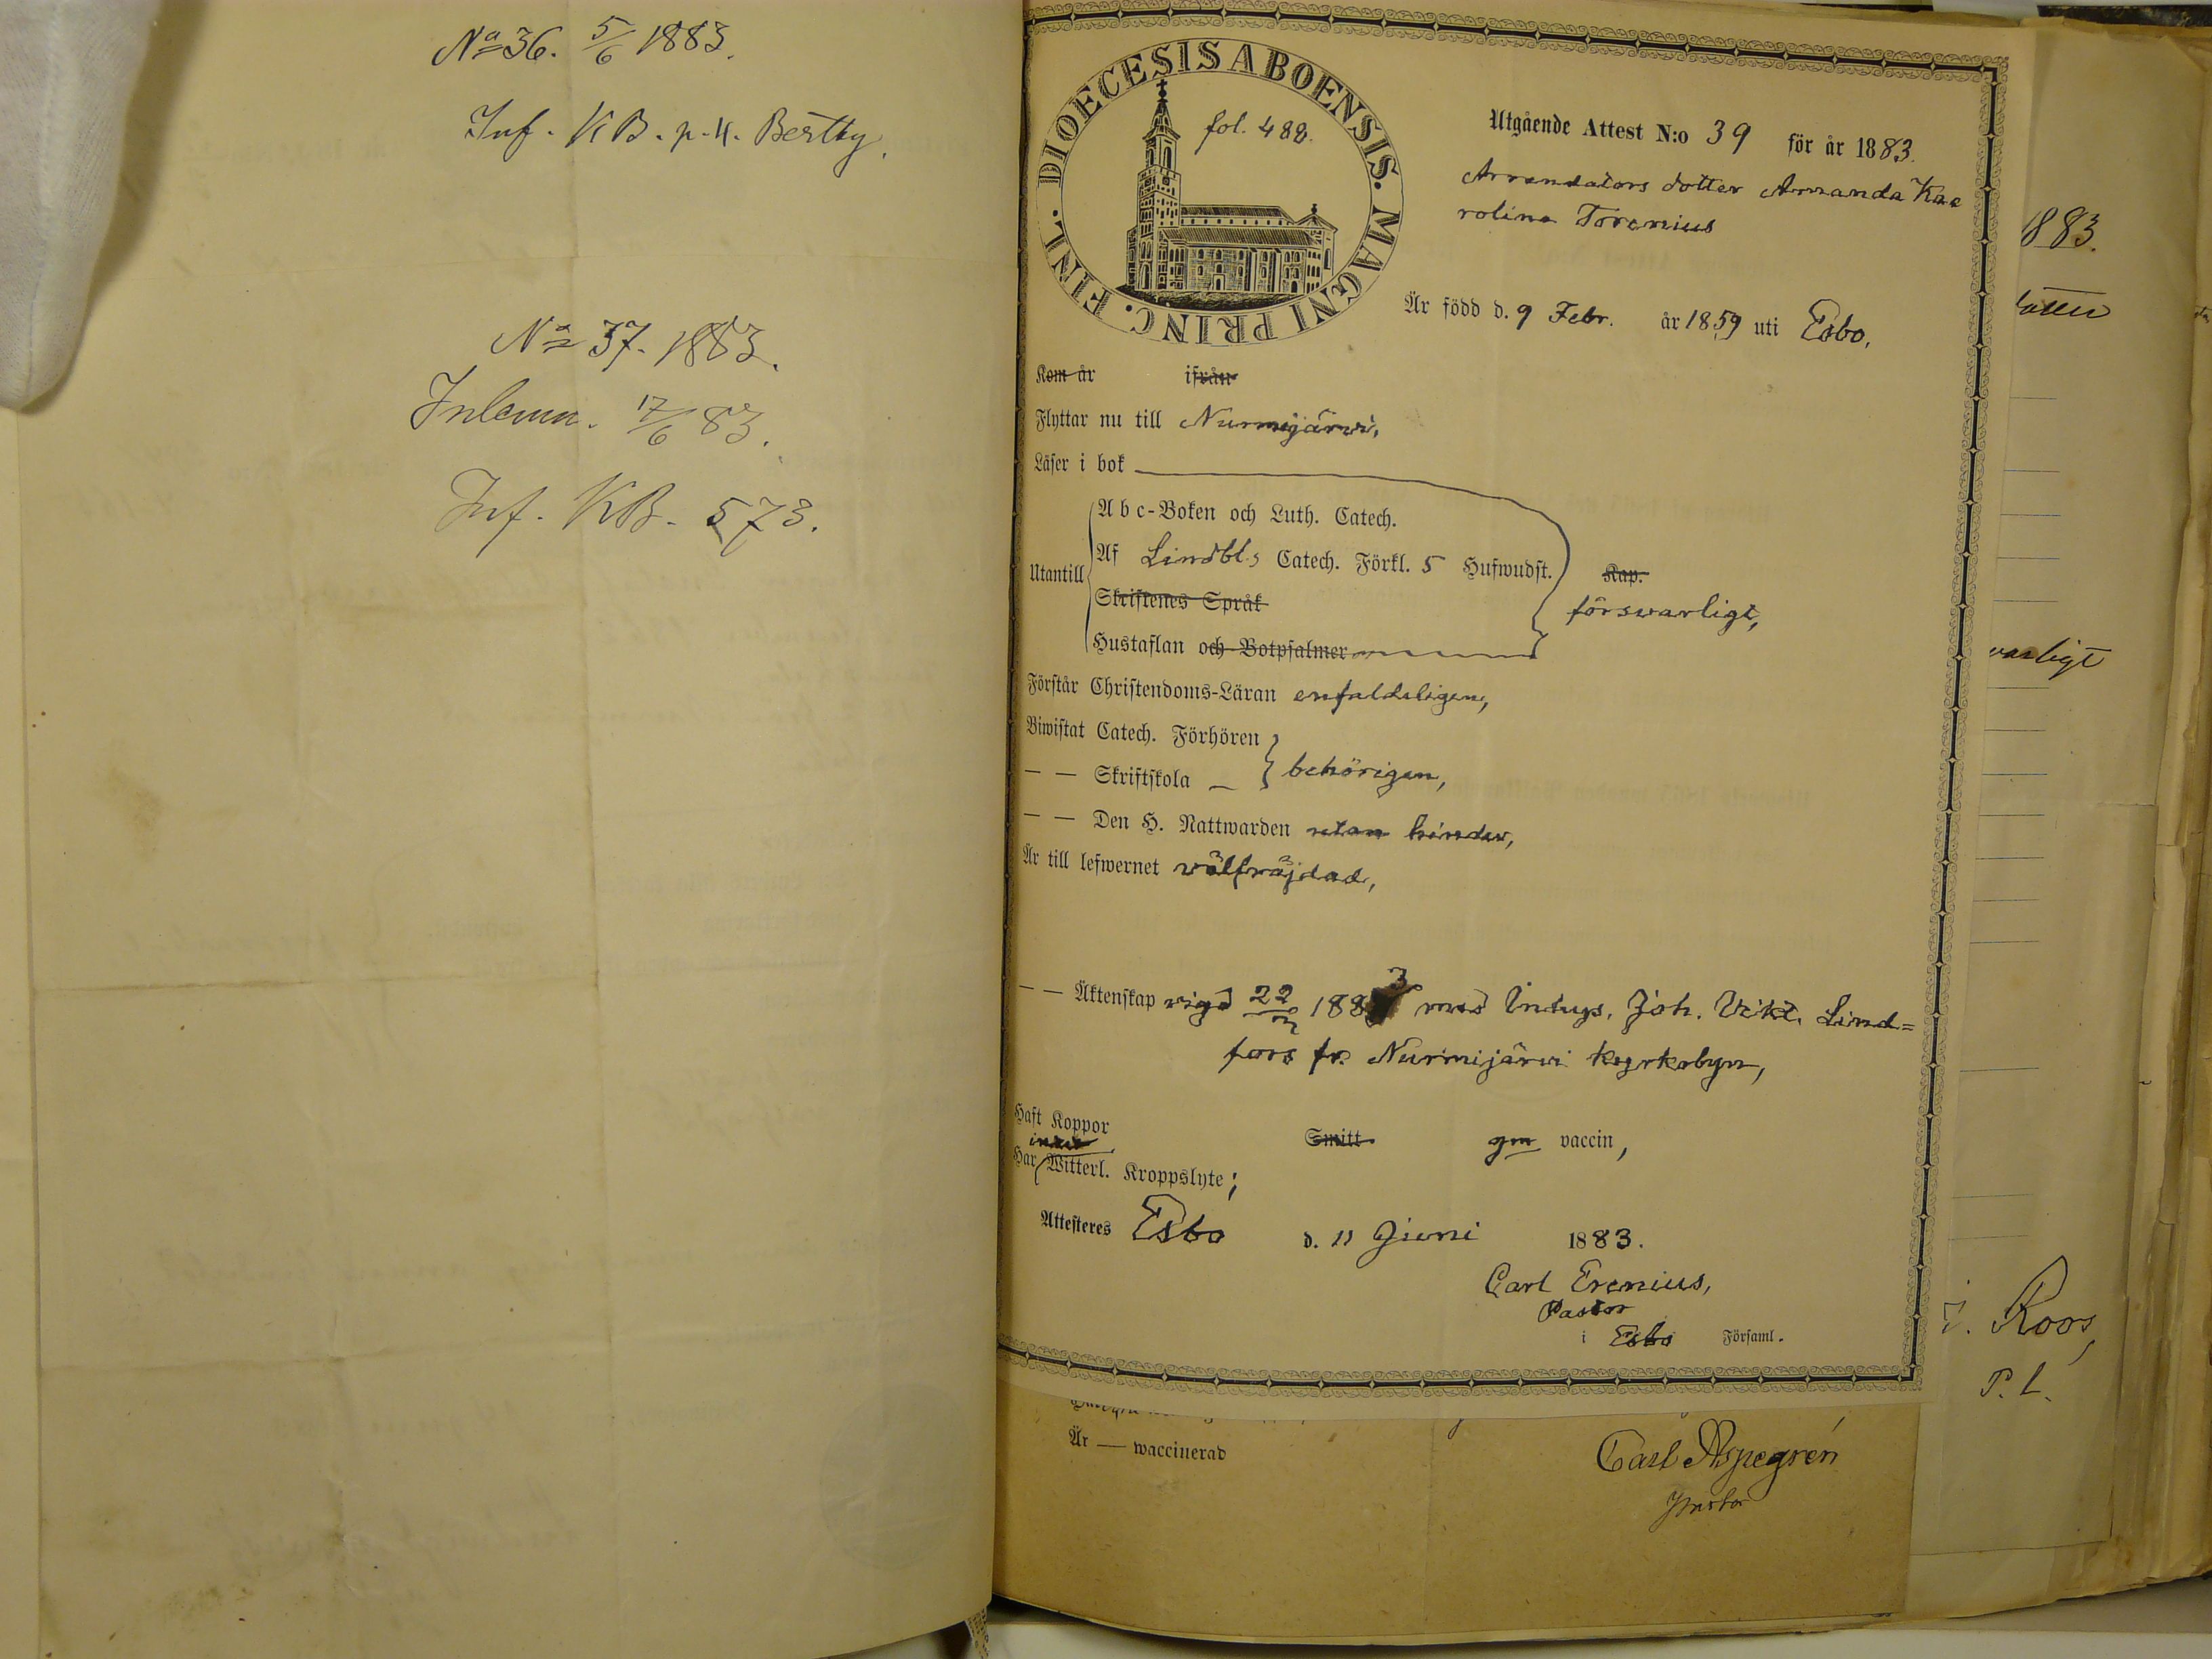 No 36. 5/6 1883.
Inf. KB. p. 4. Bertby.
No 37. 1883.
Inlemn. 17/6 83.
Inf. KB. 573.
DIOECESIS ABOENSIS. MAGNI PRINC. FINL.
fol. 488.
Utgående Attest N:o 39 för år 1883.
Arrendators dotter Amanda Ka=
rolina Torenius
Är född d. 9 Febr. år 1859 uti Esbo,
Kom år ifrån
Flyttar nu till Nurmijärwi,
Läser i bok
Utantill
Abc-Boken och Luth. Catech.
Af Lindbl:s Catech. Förkl. 5 Hufwudst. Kap.
Skriftenes Språk
förswarligt,
Hustaflan och Botpsalmer
Förstår Christendoms-Läran enfaldeligen,
Biwistat Catech. Förhören
— — Skriftskola — behörigen,
— — Den H. Nattwarden utan hinder,
Är till lefwernet wälfräjdad,
— — Äktenskap vigd 22/3 1883 med Inhys. Joh. Vikt. Lind=
fors fr. Nurmijärvi kyrkoby,
Haft Koppor Smitt gm vaccin,
intet
Har Witterl. Kroppslyte;
Attesteres Esbo d. 11 Juni 1883.
Carl Erenius,
Pastor
i Esbo Församl.
Är — waccinerad
Carl Aspegrén
Pastor
1883.
varligt
Roos,
P. l.